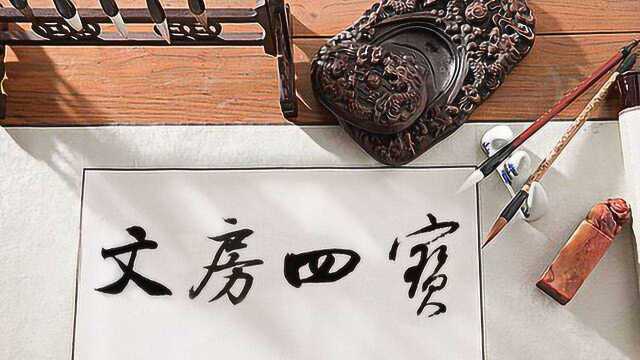 文房四寳